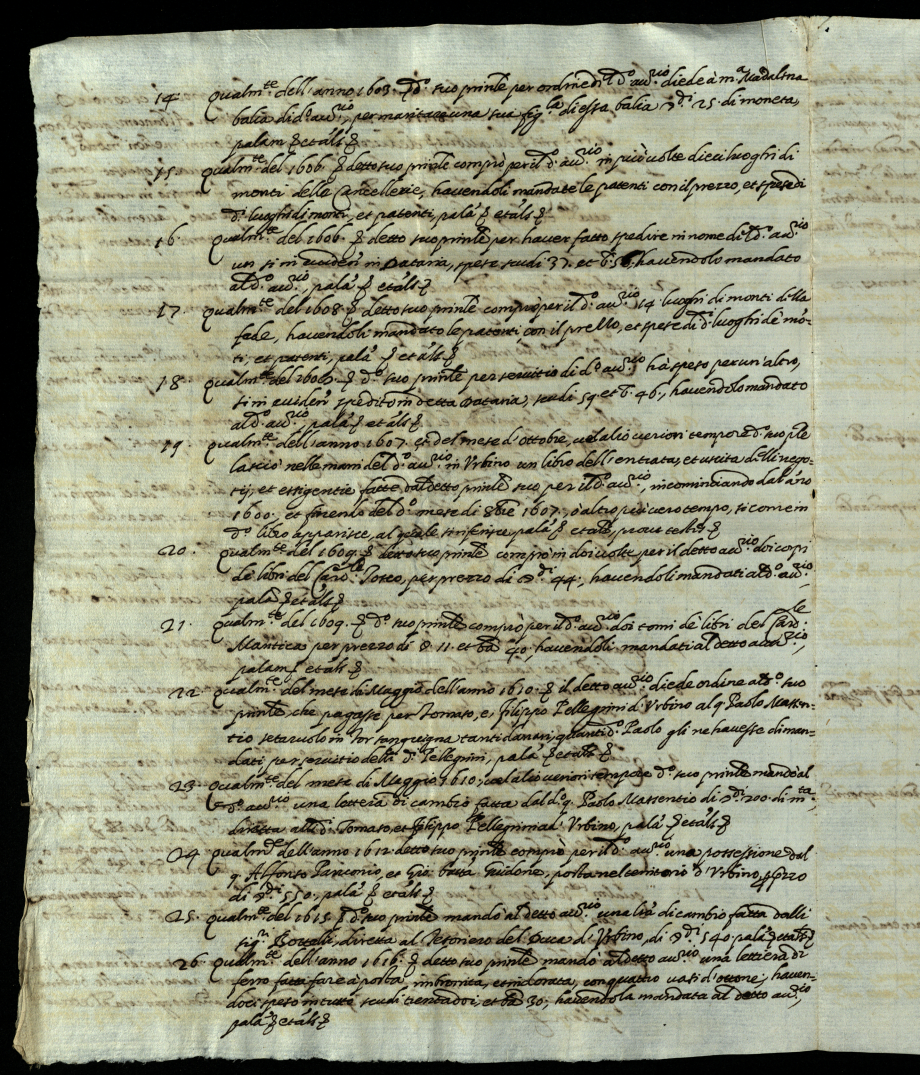 14 Qualm.te dell'anno 1603. il d.o suo prinle per ordine del d.o au.rio diede à m.a Madalena
balia di d.o au.rio, per maritare una sua fig.la di essa balia 25. di moneta,
palam et als
15. Qualm.te del 1606. detto suo prinle comprò per il d.o au.rio in più volte dieci luoghi di
monti delle Cancellerie, havendoli mandate le patenti con il prezzo, et spese di
d.i luoghi di monti, et patenti, palā et als
16 Qualm.te del 1606. detto suo prinle per haver fatto spedire in nome di d.o au.rio
un si in eviden in Dataria, spese scudi 37. et havendolo mandato
al d.o au.rio, palā et als
17. Qualm.te del 1608 detto suo prinle comprò per il d.o au.rio 14 luoghi di monti della
fede, havendoli mandato le patenti, con il prezzo, et spese di d.i luoghi de mō-
ti, et patenti, palā et als
18 Qualm.te del d.o suo prinle per servitio di d.o au.rio hà speso per un'altro,
si in eviden spedito in detta Dataria, scudi 59. et b. 46., havendolo mandato
al d.o au.rio, palā et als
19 Qualm.te dell'anno 1607. et del mese d'ottobre, vel alio veriori tempore d.o suo ple
lasciò nelle mani del d.o au.rio in Urbino un libro dell'entrata, et uscita delli nego-
tij, et essigentie fatte dal detto prinle suo per il d.o au.rio, incominciando dal año
1600. et finendo del d.o mese di 8bre 1607., ò altro più vero tempo, si come in
d.o libro apparisce, al quale si riferisce, palā et als prout testes
20. Qualm.te del 1609. detto suo prinle comprò in doi volte per il detto au.rio doi copi
de libri del Card.le Tosco, per prezzo di 44., havendoli mandati al d.o au.rio,
palā et als
21. Qualm.te del 1609. d.o suo prinle comprò per il d.o au.rio doi tomi de libri del Card.le
Mantica per prezzo di 11. et b. 40, havendoli mandati al detto au.rio,
palam et als
22 Qualm.te del mese di Maggio dell'anno 1610. il detto au.rio diede ordine al d.o suo
prinle, che pagasse per Tomaso, e, Filippo Pellegrini d'Urbino al q. Paolo Massen-
tio setarolo in Tor sanguigna tanti danari, quanti d.o Paolo gli ne havesse diman-
dati per servitio delli d.i Pellegrini, palā et als
23. Qualm.te del mese di Maggio 1610., vel alio veriori tempore d.o suo prinle mandò al
d.o au.rio una lettera di cambio fatta dal d.o q. Paolo Massentio di 200. di m.ta
diretta alli d.i Tomaso, et Filippo Pellegrini d'Urbino, palā et als
24 Qualm.te dell'anno 1612 detto suo prinle comprò per il d.o au.rio una possessione dal
q. Alfonso et Gio: bat.a Guidone, posta nel territorio d'Urbino, prezzo
di 550., palā et als
25. Qualm.te del 1615 d.o suo prinle mandò al detto au.rio una lrã di cambio fatta dalli
sig.ri diretta al Tesoriero del Duca di Urbino, di 540 palā et als
26 Qualm.te dell'anno 1616. detto suo prinle mandò al detto au.rio una lettiera di
ferro fatta fare à posta, imbronita, et indorata, con quattro vasi d'ottone, haven-
doci speso in tutto scudi trentadoi, et b. 30; havendola mandata al detto au.rio,
palā et als